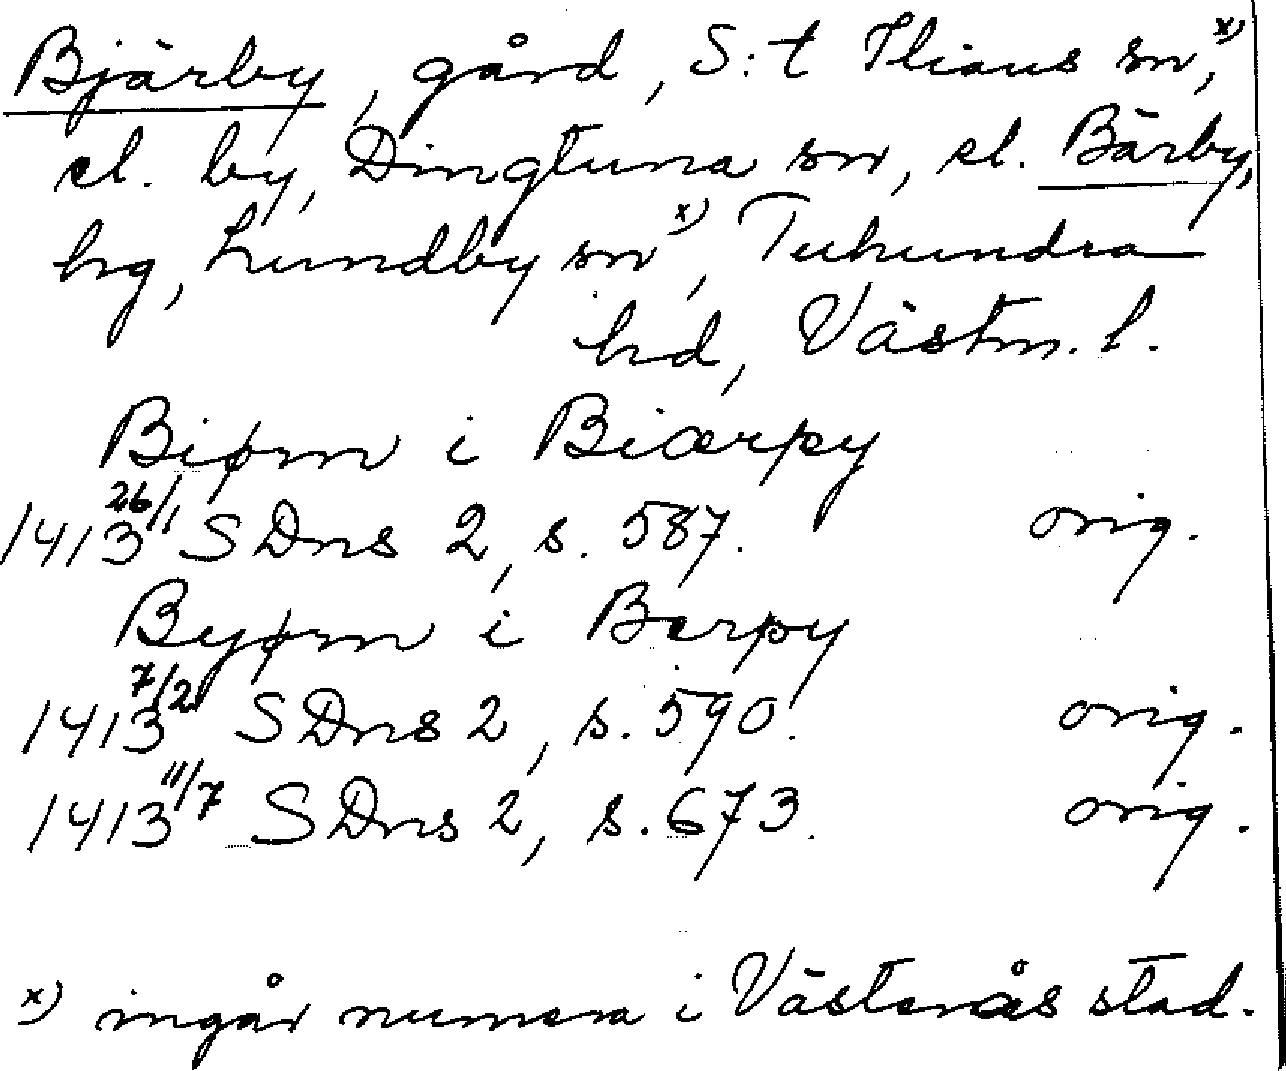 Bjärby, gård, S:t Ilians sn,x)
el. by, Dingtuna sn, el. Bärby,
hg, Lundby sn x), Tuhundra
hd, Västm. l.
Biørn i Biærpy
1413 26/1 SDns 2, s. 587. orig.
Byørn i Berpy
1413 7/2 SDns 2, s. 590. orig.
1413 11/7 SDns 2, s. 673. orig.
x) ingår numera i Västerås stad.